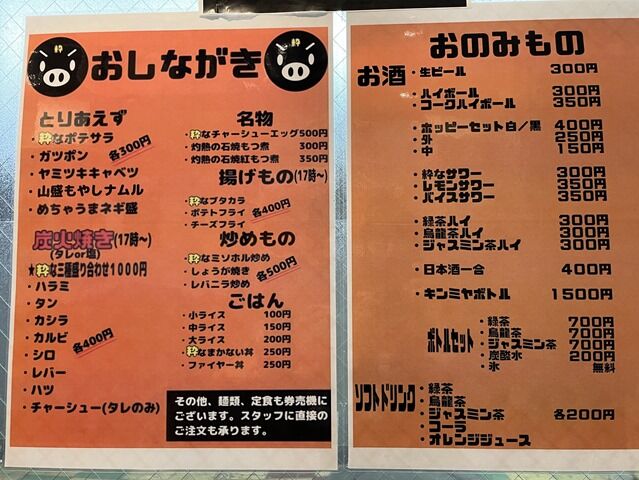 粋
おしながき
粋
とりあえず
粋なポテサラ
・ガツポン
・ヤミツキキャベツ
・山盛もやしナムル
・めちゃうまネギ盛
各300円
炭火焼き(17時〜)
(タレor塩)
★粋な三種盛り合わせ1000円
・ハラミ
・タン
・カシラ
・カルビ
・シロ
・レバー
・ハツ
・チャーシュー(タレのみ)
各400円
名物
・粋なチャーシューエッグ500円
・灼熱の石焼もつ煮 300円
・灼熱の石焼紅もつ煮 350円
揚げもの(17時〜)
・粋なブタカラ
・ポテトフライ
・チーズフライ
各400円
炒めもの
・粋なミソホル炒め
・しょうが焼き
・レバニラ炒め
各500円
ごはん
・小ライス 100円
・中ライス 150円
・大ライス 200円
・粋なまかない丼 250円
・ファイヤー丼 250円
その他、麺類、定食も券売機に
ございます。スタッフに直接の
ご注文も承ります。
おのみもの
お酒
・生ビール 300円
・ハイボール 300円
・コークハイボール 350円
・ホッピーセット白/黒 400円
・外 250円
・中 150円
・粋なサワー 300円
・レモンサワー 350円
・バイスサワー 350円
・緑茶ハイ 300円
・烏龍茶ハイ 300円
・ジャスミン茶ハイ 300円
・日本酒一合 400円
・キンミヤボトル 1500円
ボトルセット
・緑茶 700円
・烏龍茶 700円
・ジャスミン茶 700円
・炭酸水 200円
・氷 無料
ソフトドリンク
・緑茶
・烏龍茶
・ジャスミン茶
・コーラ
・オレンジジュース
各200円